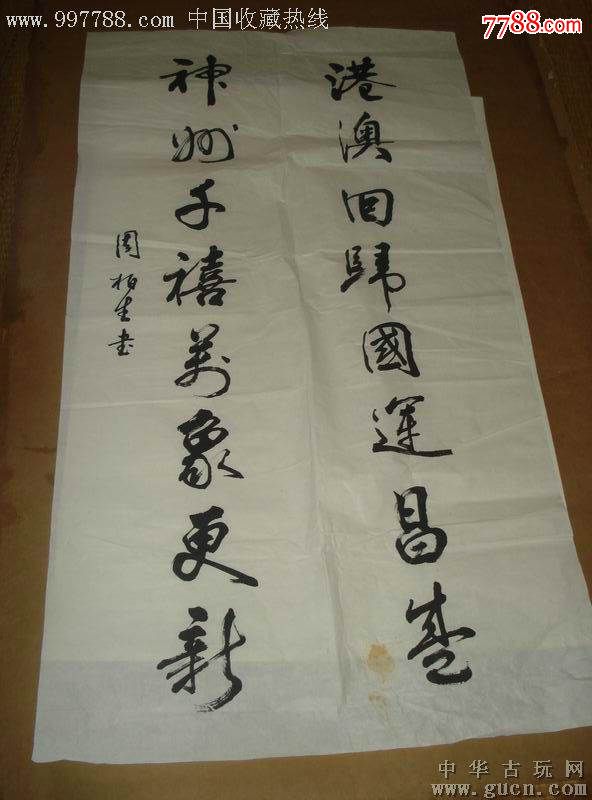 www.997788.com 中国收藏热线
7788.com
港澳回歸國運昌盛
神州千禧萬象更新
周柏生书
中华古玩网
www.gucn.com